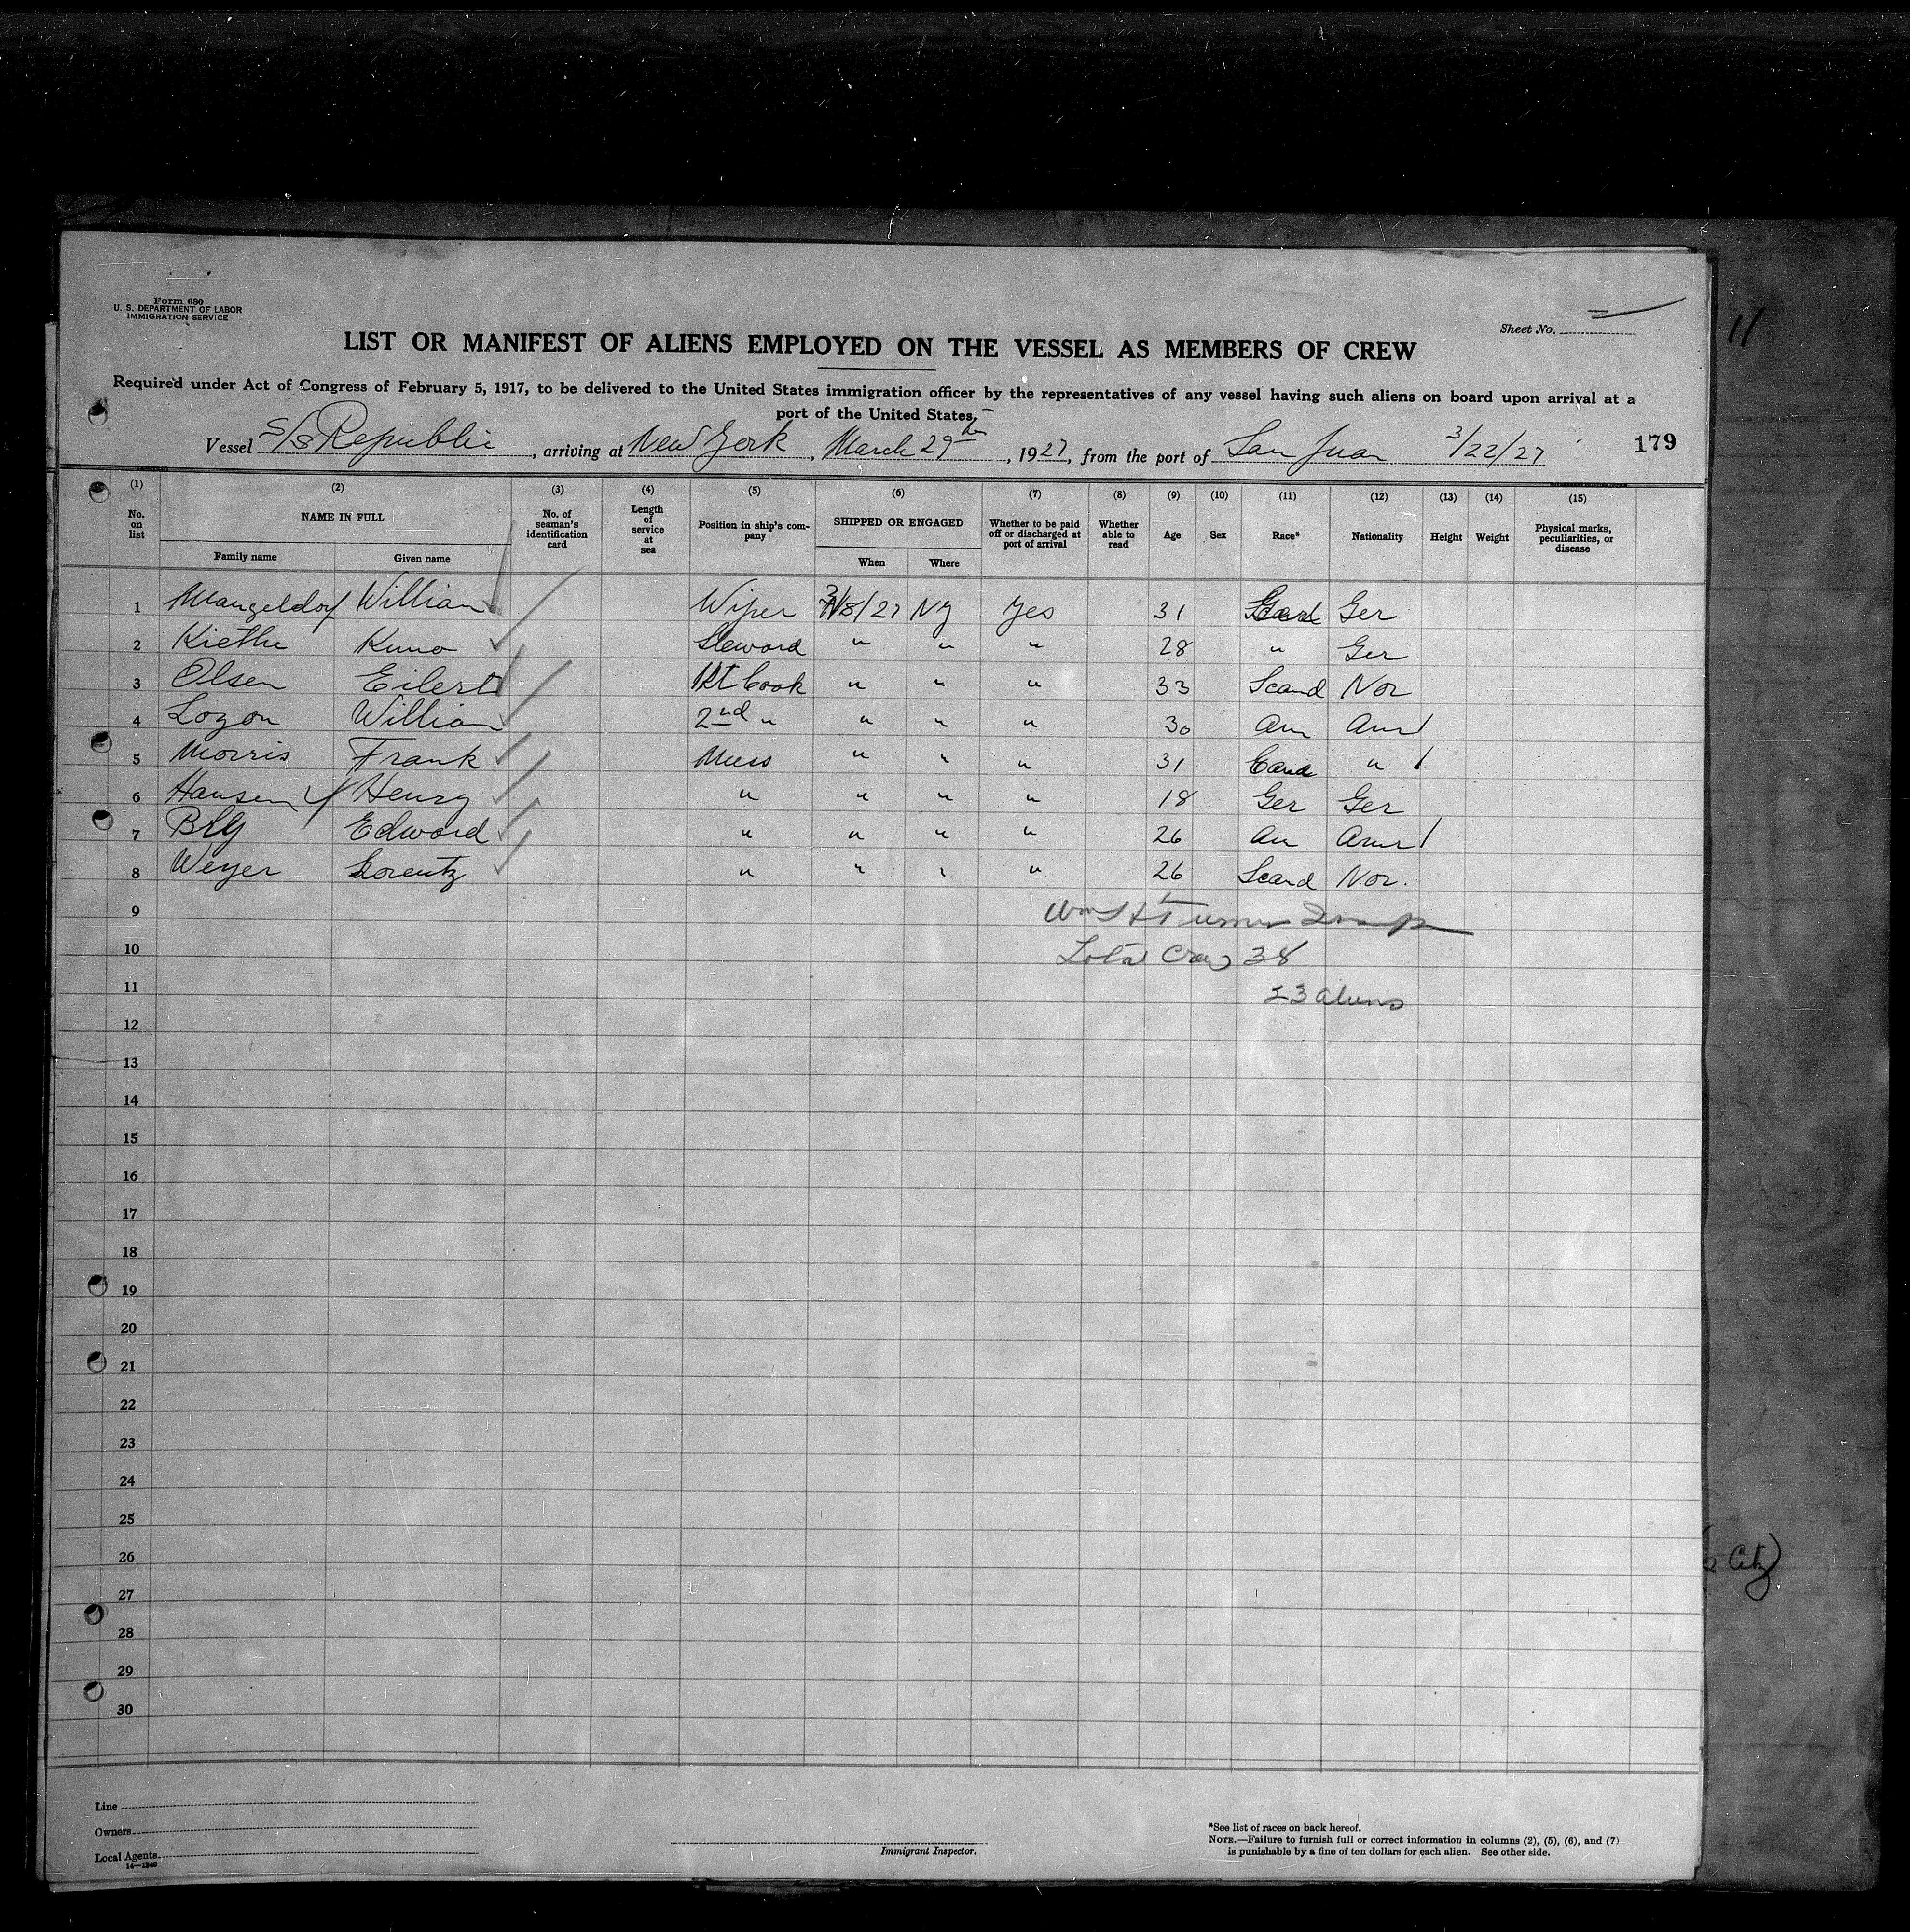 Form 680
U. S. DEPARTMENT OF LABOR
IMMIGRATION SERVICE
Sheet No.
11
LIST OR MANIFEST OF ALIENS EMPLOYED ON THE VESSEL AS MEMBERS OF CREW
Required under Act of Congress of February 5, 1917, to be delivered to the United States immigration officer by the representatives of any vessel having such aliens on board upon arrival at a
port of the United States.
Vessel S/S Republic, arriving at New York, March 29th, 1927, from the port of San Juan 3/22/27 179
(1) (2) (3) (4) (5) (6) (7) (8) (9) (10) (11) (12) (13) (14) (15)
No. on list NAME IN FULL No. of seaman's identification card Length of service at sea Position in ship's company SHIPPED OR ENGAGED Whether to be paid off or discharged at port of arrival Whether able to read Age Sex Race* Nationality Height Weight Physical marks, peculiarities, or disease
Family name Given name When Where
1 Mangeldorf William Wiper 3/8/27 NY Yes 31 Ger
2 Kiethe Kuno Steward " " " 28 " Ger
3 Olsen Eilert 1st Cook " " " 33 Scand Nor
4 Lozon William 2nd " " " " 30 Am Amr
5 Morris Frank Mess " " " 31 "
6 Hansen Henry " " " " 18 Ger Ger
7 Bly Edward " " " " 26 Am Amr
8 Weyer Lorentz " " " " 26 Scand Nor.
9 Turner
10 Total Crew 38
11 23 aliens
12
13
14
15
16
17
18
19
20
21
22
23
24
25
26
27
28
29
30
Line
Owners
Local Agents
14—1240
Immigrant Inspector.
*See list of races on back hereof.
NOTE.—Failure to furnish full or correct information in columns (2), (5), (6), and (7)
is punishable by a fine of ten dollars for each alien. See other side.